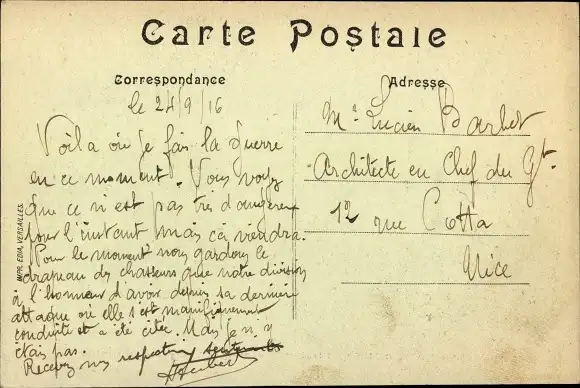 Carte Postale
Correspondance
le 24/9/16
Voila où je fais la guerre
en ce moment. Vous voyez
que ce n'est pas très dangereux
pour l'instant mais ça viendra.
Pour le moment nous gardons le
drapeau des chasseurs que notre division
à l'honneur d'avoir depuis sa dernière
attaque où elle s'est magnifiquement
conduite et a été citée. Mais je n'y
étais pas.
Recevez mes respectueux sentiments
Adresse
Mr Lucien Barbet
Architecte en Chef du Gt.
12 rue Cotta
Nice
IMP. EDIA, VERSAILLES.